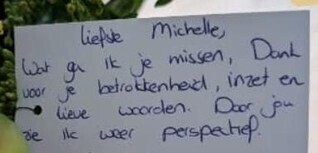 Liefste Michelle,
Wat ga ik je missen, Dank
voor je betrokkenheid, inzet en
lieve woorden. Door jou
zie ik weer perspectief.